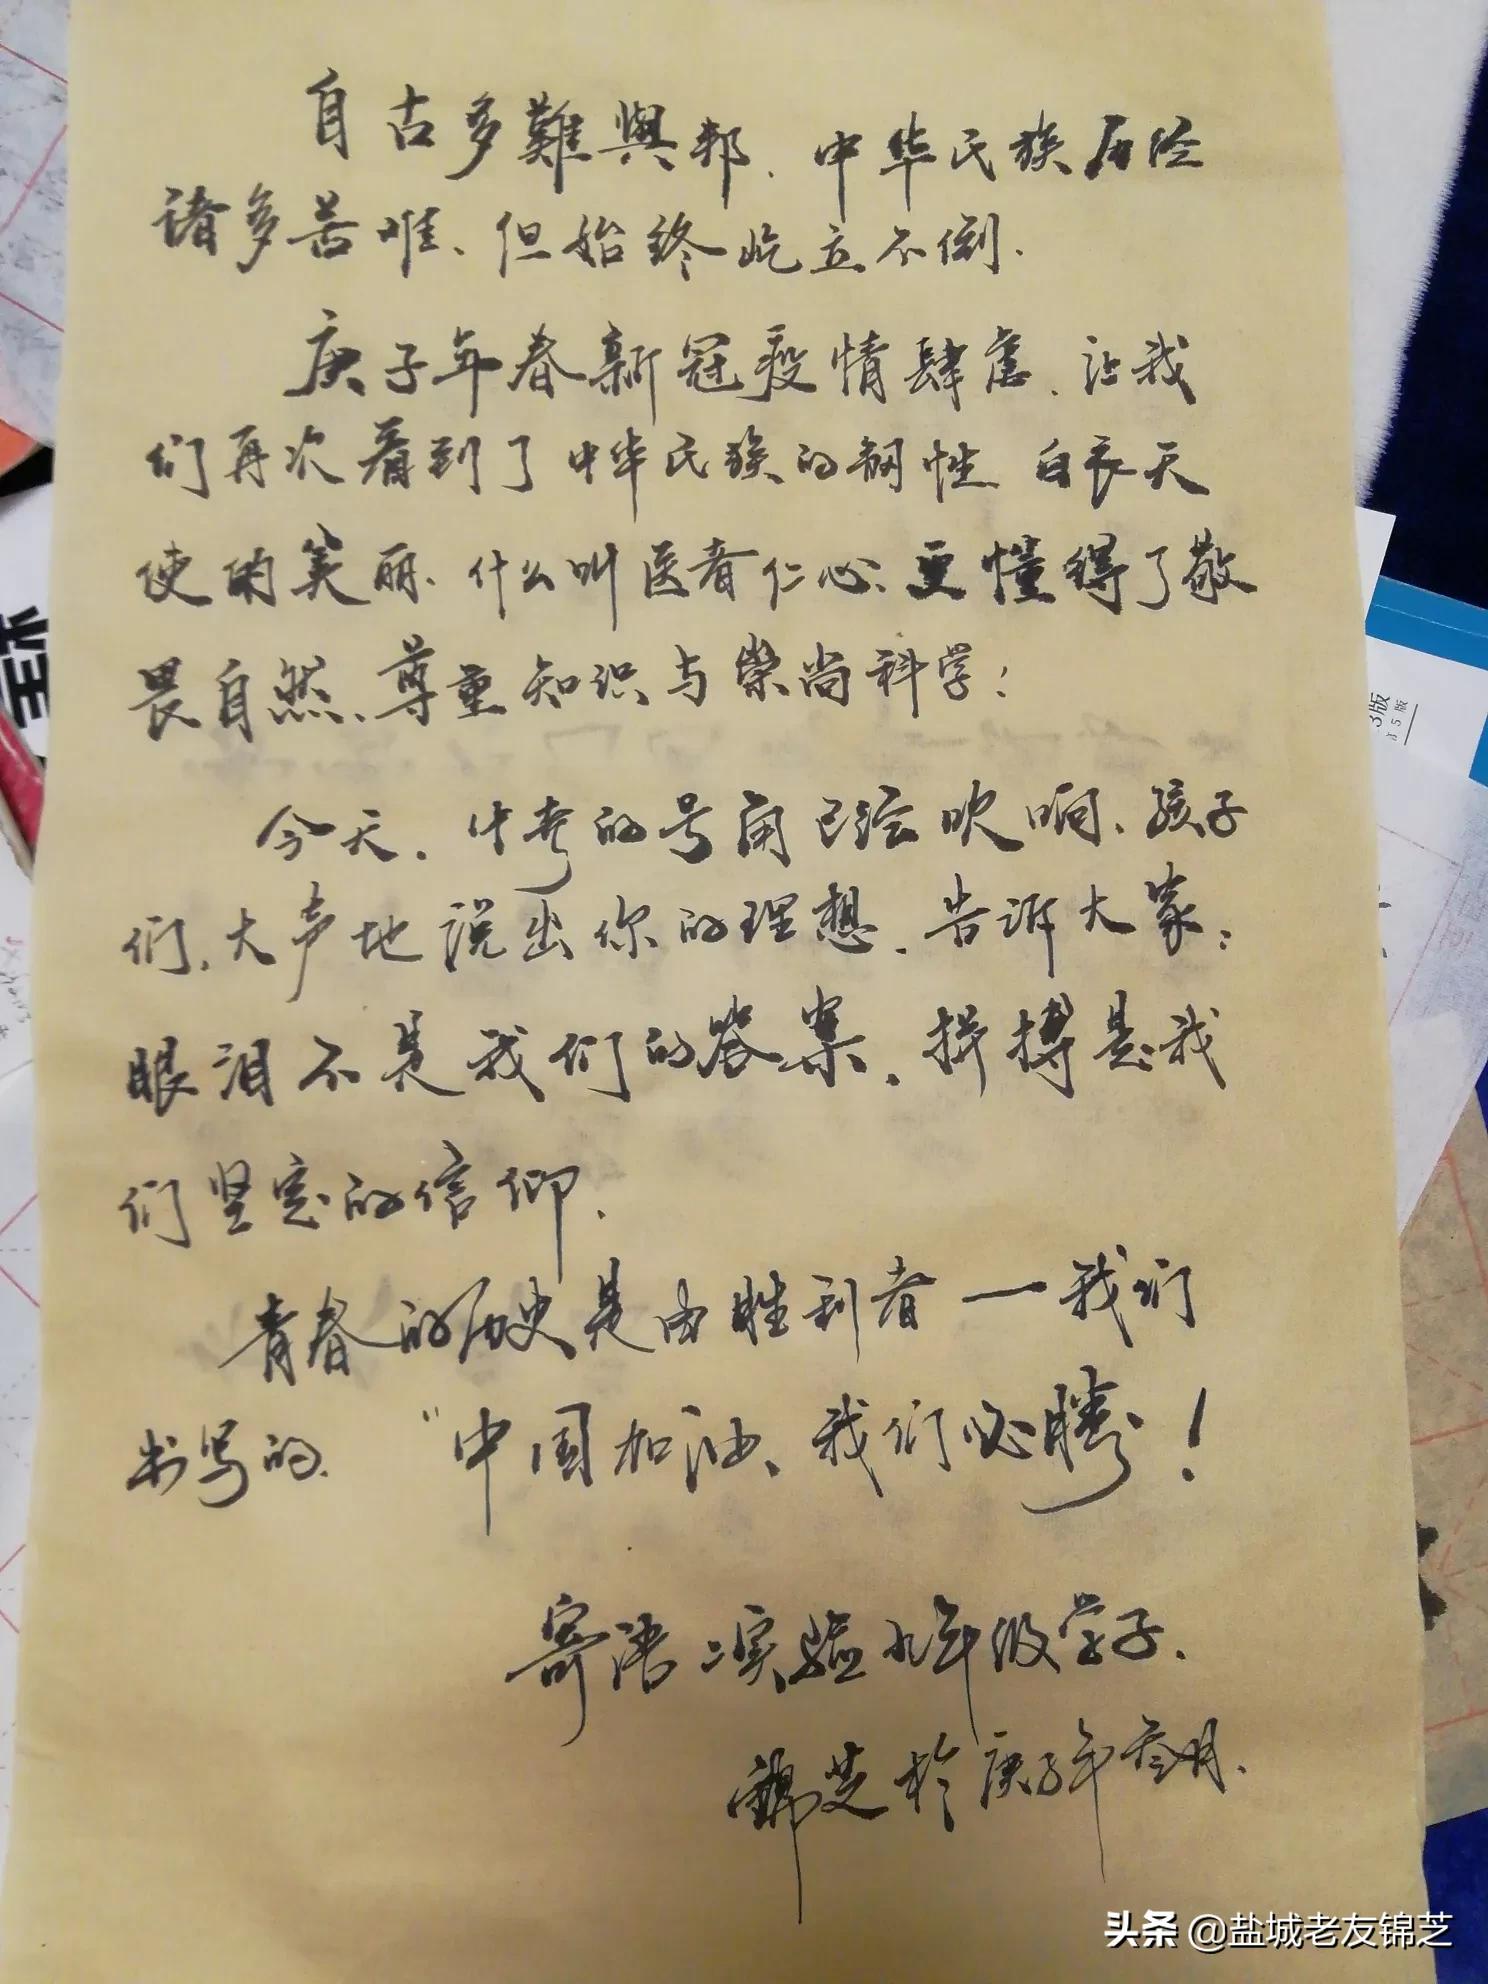 自古多難興邦、中华民族历经
诸多苦难、但始终屹立不倒.
庚子年春新冠疫情肆虐、让我
们再次看到了中华民族的韧性、白衣天
使的美丽、什么叫医者仁心、更懂得了敬
畏自然、尊重知识与崇尚科学！
今天、中考的号角已经吹响、孩子
们、大声地说出你的理想、告诉大家：
眼泪不是我们的答案、拼搏是我
们坚定的信仰.
青春的历史是由胜利者—我们
书写的、“中国加油、我们必勝！
寄语二实验九年级学子.
錦芝於庚子年叁月.
3版
第5版
头条 @盐城老友锦芝